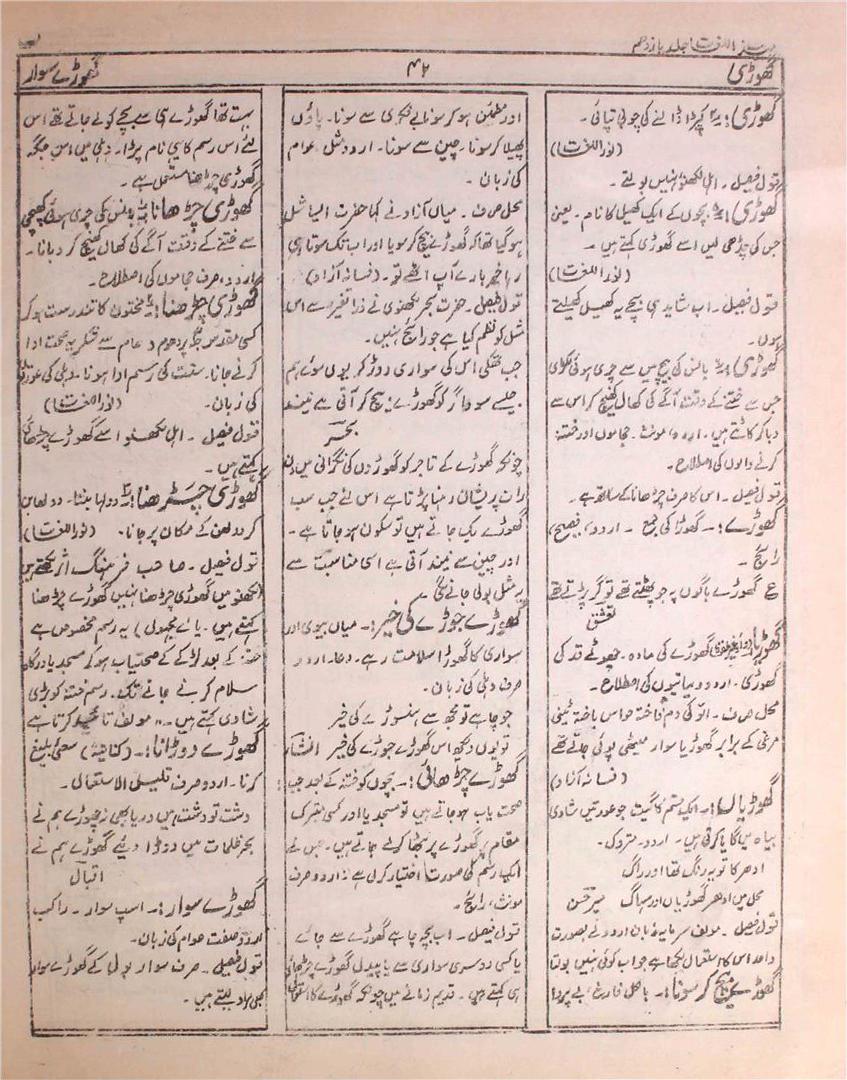 مہذب اللغت (جلد یازدہم
گھوڑی
۴۲
گھوڑے سوار
گھوڑی :۔ کپڑا ڈالنے کی چوبی تپائی۔
(نوراللغت)
قول فیصل۔ اہل لکھنؤ نہیں بولتے۔
گھوڑی :۔ بچوں کے ایک کھیل کا نام۔ یعنی
جس کی چڑھی لیں اسے گھوڑی کہتے ہیں۔
(نوراللغت)
قول فیصل۔ اب شاید ہی بچے یہ کھیل کھیلتے
ہوں۔
گھوڑی :۔ بانس کی بیچ میں سے چری ہوئی لکڑی
جس سے ختنے کے وقت آگے کی کھال کھینچ کر اس سے
دبا کر کاٹتے ہیں۔ اردو، مونث۔ حجاموں اور ختنہ
کرنے والوں کی اصطلاح۔
قول فیصل۔ اس کا صرف چڑھانا کے ساتھ ہے۔
گھوڑے :۔ گھوڑا کی جمع۔ اردو، فصیح،
رائج۔
ع گھوڑے باگوں پہ جو پھٹتے تھے تو گر پڑتے تھے
تعشق
گھوڑیا (واو غیر ملفوظی) گھوڑے کی مادہ۔ چھوٹے قد کی
گھوڑی۔ اردو دیہاتیوں کی اصطلاح۔
محل صرف۔ اتو کی دم فاختہ حواس باختہ ٹینی
مرغی کے برابر گھوڑیا سوار میٹھی پوئی جاتے تھے
(فسانہ آزاد)
گھوڑیاں :۔ ایک قسم کا گیت جو عورتیں شادی
بیاہ میں گایا کرتی ہیں۔ اردو۔ متروک۔
ادھر کا تو یہ رنگ تھا اور راگ
محل میں ادھر گھوڑیاں اور سہاگ میر حسن
قول فیصل۔ مولف سرمایہ زبان اردو نے بصورت
واحد اس کا استعمال لکھا ہے جو اب کوئی نہیں بولتا
گھوڑے بیچ کر سونا :۔ بالکل فارغ، بے پروا
اور مطمئن ہو کر سونا بے فکری سے سونا۔ پاؤں
پھیلا کر سونا۔ چین سے سونا۔ اردو مثل۔ عوام
کی زبان۔
محل صرف۔ میاں آزاد نے کہا حضرت ایسا شل
ہو گیا تھا کہ گھوڑے بیچ کر سویا اور اب تک سوتا ہی
رہا خیر بارے آپ اٹھے تو۔ (فسانہ آزاد)
قول فیصل۔ حضرت بحر لکھنوی نے ذرا تغیر سے اس
مثل کو نظم کیا ہے جو رائج نہیں۔
جب تھکی اس کی سواری دوڑ کر یوں سوئے ہم
جیسے سوداگر کو گھوڑے بیچ کر آتی ہے نیند
بحر
چونکہ گھوڑے کے تاجر کو گھوڑوں کی نگرانی میں دن
رات پریشان رہنا پڑتا ہے اس لئے جب سب
گھوڑے بک جاتے ہیں تو سکون ہو جاتا ہے۔
اور چین سے نیند آتی ہے اسی مناسبت سے
یہ مثل بولی جانے لگی۔
گھوڑے جوڑے کی خیر :۔ میاں بیوی اور
سواری کا گھوڑا سلامت رہے۔ دعا۔ اردو
صرف دہلی کی زبان۔
جو چاہے تو مجھ سے ہنسوڑے کی خیر
تو یوں دیکھ اس گھوڑے جوڑے کی خیر انشا
گھوڑے چڑھائی :۔ بچوں کو ختنہ کے بعد جب
صحت یاب ہو جاتے ہیں تو مسجد یا اور کسی متبرک
مقام پر گھوڑے پر بٹھا کر لے جاتے ہیں۔ جس نے
ایک رسم کی صورت اختیار کر لی ہے۔ اردو صرف
مونث، رائج۔
قول فیصل۔ اب بچہ چاہے گھوڑے سے جائے
یا کسی دوسری سواری سے یا پیدل گھوڑے چڑھائی
ہی کہتے ہیں۔ قدیم زمانے میں چونکہ گھوڑے کا استعمال
بہت تھا گھوڑے ہی سے بچے کو لے جاتے تھے اس
لئے اس رسم کا یہی نام پڑا۔ دہلی میں اس جگہ
گھوڑی چڑھنا مستعمل ہے۔
گھوڑی چڑھانا :۔ بانس کی چری ہوئی کھپچی
سے ختنے کے وقت آگے کی کھال کھینچ کر دبانا۔
اردو، صرف حجاموں کی اصطلاح۔
گھوڑی چڑھنا :۔ مختون کا تندرست ہو کر
کسی مقدس جگہ پر دھوم دھام سے شکریہ صحت ادا
کرنے جانا۔ سنت کی رسم ادا ہونا۔ دہلی کی عورتوں
کی زبان۔ (نوراللغت)
قول فیصل۔ اہل لکھنؤ اسے گھوڑے چڑھائی
کہتے ہیں۔
گھوڑی چڑھنا :۔ دولہا بننا۔ دولھا بن
کر دولھن کے مکان پر جانا۔ (نوراللغت)
قول فیصل۔ صاحب فرہنگ اثر لکھتے ہیں
لکھنؤ میں گھوڑی چڑھنا نہیں گھوڑے چڑھنا
کہتے ہیں۔ (یائے مجہول) یہ رسم مخصوص ہے
ختنہ کے بعد لڑکے کے صحتیاب ہو کے مسجد یا درگاہ
سلام کرنے جانے تک۔ رسم ختنہ کو بڑی
شادی کہتے ہیں۔،، مولف تائید کرتا ہے
گھوڑے دوڑانا :۔ (کنایۃً) سعی بلیغ
کرنا۔ اردو صرف قلیل الاستعمال۔
دشت تو دشت ہیں دریا بھی نہ چھوڑے ہم نے
بحر ظلمات میں دوڑا دیئے گھوڑے ہم نے
اقبال
گھوڑے سوار :۔ اسپ سوار۔ راکب
اردو صفت عوام کی زبان۔
قول فیصل۔ صرف سوار بول کے گھوڑے سوار
بھی مراد لیتے ہیں۔